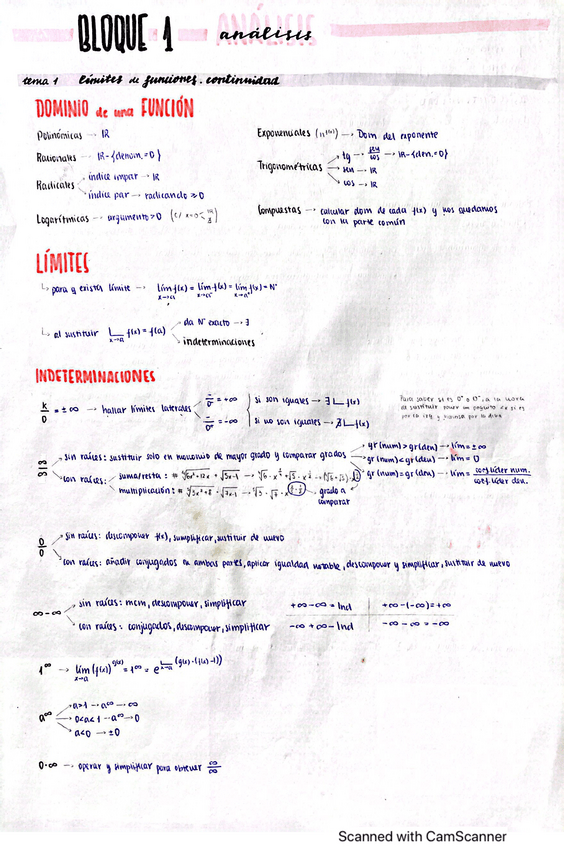 BLOQUE 1 ANÁLISIS análisis
tema 1 límites de funciones. continuidad
DOMINIO de una FUNCIÓN
Polinómicas → IR
Racionales → IR-{denom=0}
Radicales índice impar → IR
índice par → radicando ≥ 0
Logarítmicas → argumento>0
Exponenciales → Dom del exponente
Trigonométricas tg → sen/cos → IR-{den.=0}
sen → IR
cos → IR
Compuestas → calcular dom de cada f(x) y nos quedamos
con la parte común
LÍMITES
↳ para q exista límite → lím f(x) = lím f(x) = lím f(x) = Nº
↳ al sustituir L f(x) = f(a) da Nº exacto → ∃
x→a
indeterminaciones
INDETERMINACIONES
k/0 = ±∞ → hallar límites laterales
= +∞
= -∞
si son iguales → ∃ L f(x)
si no son iguales → ∄ L f(x)
Para saber si es 0⁺ o 0⁻, a la hora
de sustituir poner un poquito
∞/∞ sin raíces: sustituir solo en monomio de mayor grado y comparar grados
gr(num)>gr(den) → lím=±∞
gr(num)<gr(den) → lím=0
gr(num)=gr(den) → lím= coef líder num. / coef. líder den.
con raíces: suma/resta:
multiplicación:
grado a
comparar
0/0 sin raíces: descomponer f(x), simplificar, sustituir de nuevo
con raíces: añadir conjugados en ambas partes, aplicar igualdad notable, descomponer y simplificar, sustituir de nuevo
∞-∞ sin raíces: mcm, descomponer, simplificar
con raíces: conjugados, descomponer, simplificar
+∞-∞ = Ind
+∞-(-∞)=+∞
-∞+∞ = Ind
-∞-∞ = -∞
1^∞ → lím (f(x))^g(x) = 1^∞ = e^(L (g(x)·(f(x)-1)))
x→a
a^∞ a>1 → a^∞ → ∞
0<a<1 → a^∞ → 0
a<0 → ±0
0·∞ → operar y simplificar para obtener ∞/∞
Scanned with CamScanner